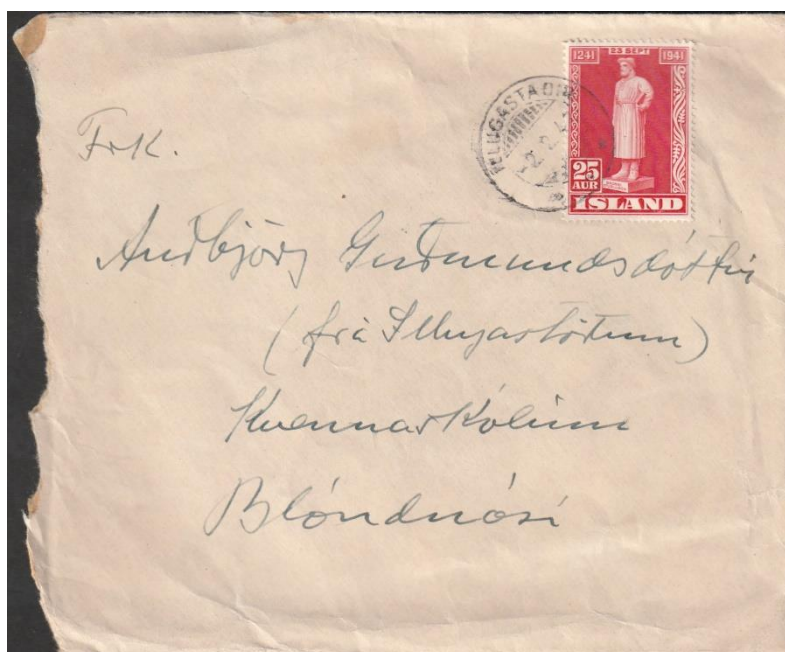 1241 23 SEPT 1941
ILLUGASTAÐIR
25
AUR
ÍSLAND
Frk.
Auðbjörg Guðmundsdóttir
(frá Illugastöðum)
Kvennaskólinn
Blönduósi